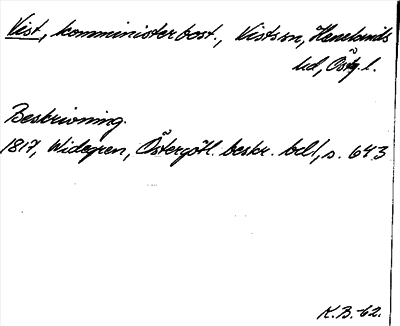 Vist, komministerbost., Vists sn, Hanekinds
hd, Östg. l.
Beskrivning.
1817, Widegren, Östergötl. beskr. bd 1, s. 643
K.B. -62.